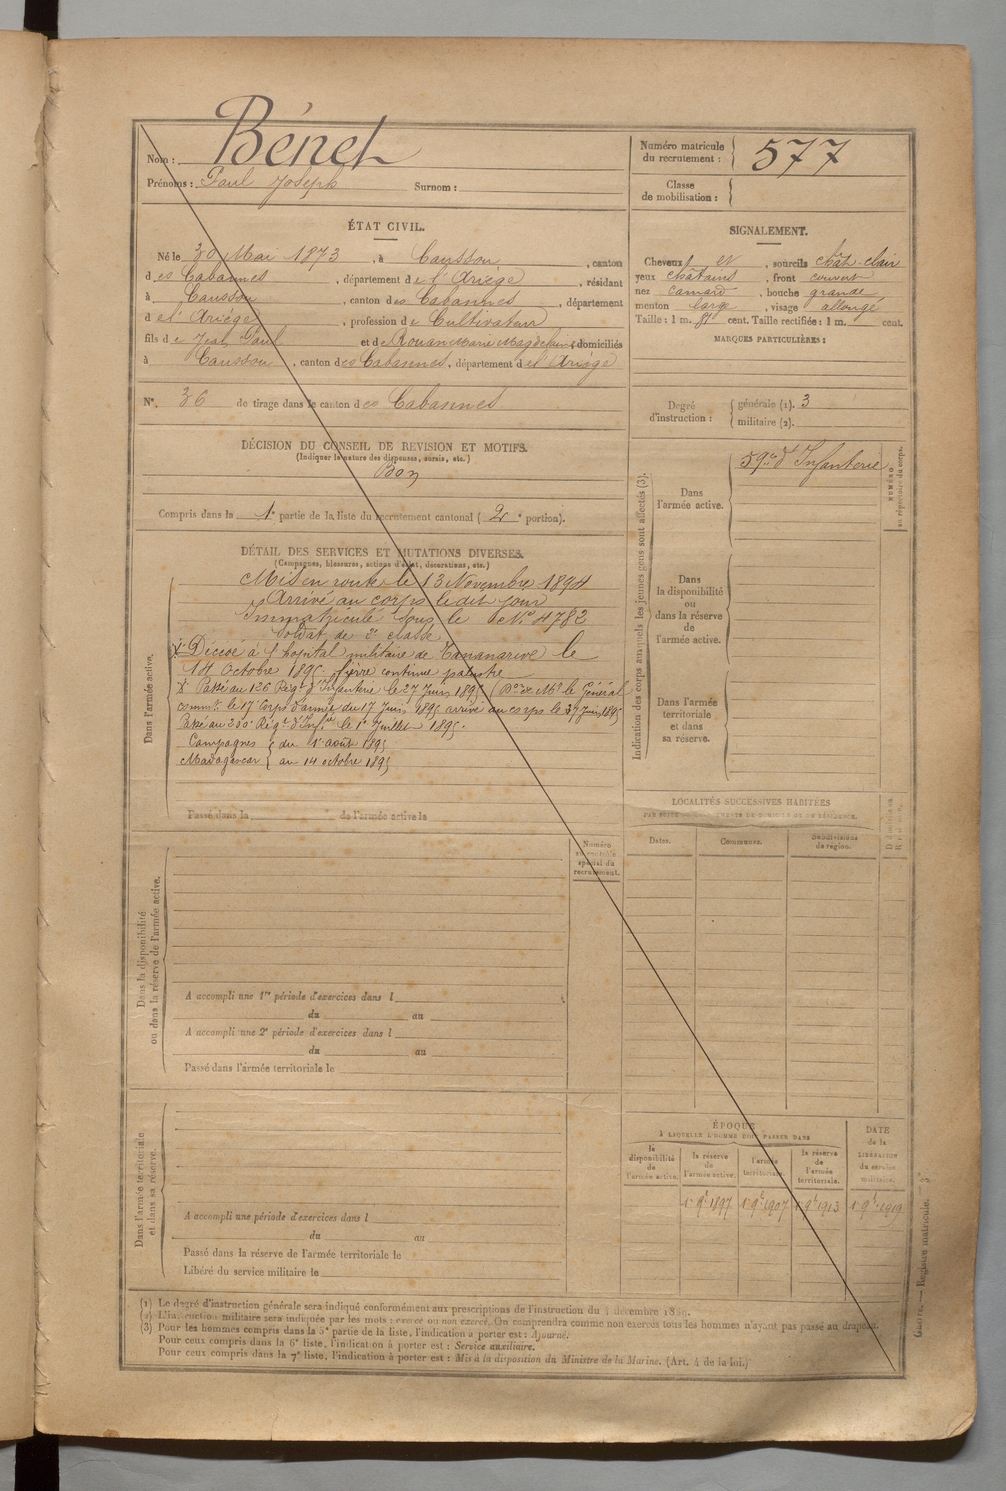 Nom : Bénet
Prénoms : Paul Joseph Surnom :
Numéro matricule
du recrutement : 577
Classe
de mobilisation :
ÉTAT CIVIL.
Né le 30 Mai 1873, à Caussou, canton
des Cabannes, département de l'Ariège, résidant
à Caussou, canton des Cabannes, département
de l'Ariège, profession de Cultivateur
fils de Jean Paul et de Rouan Marie Magdelaine, domiciliés
à Caussou, canton des Cabannes, département de l'Ariège
N°. 36 de tirage dans le canton des Cabannes
SIGNALEMENT.
Cheveux et, sourcils chât. clair
yeux châtains, front couvert
nez camard, bouche grande
menton large, visage allongé
Taille : 1 m. cent. Taille rectifiée : 1 m. cent.
MARQUES PARTICULIÈRES :
Degré
d'instruction :
générale (1). 3
militaire (2).
DÉCISION DU CONSEIL DE REVISION ET MOTIFS.
(Indiquer la nature des dispenses, sursis, etc.)
Bon
Compris dans la 1e partie de la liste du recrutement cantonal (2e portion).
DÉTAIL DES SERVICES ET MUTATIONS DIVERSES.
(Campagnes, blessures, actions d'éclat, décorations, etc.)
Dans l'armée active.
Mis en route le 13 Novembre 1894
Arrivé au corps le dit jour
Immatriculé sous le N° 4782
Soldat de 2e classe
Décédé à l'hôpital militaire de Tananarive le
14 Octobre 1895. fièvre continue palustre
Passé au 126 Régt d'Infanterie le 27 Juin 1895 (Don de Mr le Général
commt le 17 Corps d'armée du 17 Juin 1895 arrivé au corps le 27 Juin 1895
Passé au 200 Régt d'Infie le 1er Juillet 1895.
Campagnes du 1er août 1895
Madagascar au 14 octobre 1895
Passé dans la de l'armée active le
Indication des corps auxquels les jeunes gens sont affectés (3).
Dans
l'armée active.
59me d'Infanterie
NUMÉRO
au répertoire du corps.
Dans
la disponibilité
ou
dans la réserve
de
l'armée active.
Dans l'armée
territoriale
et dans
sa réserve.
LOCALITÉS SUCCESSIVES HABITÉES
PAR SUITE DE CHANGEMENTS DE DOMICILE OU DE RÉSIDENCE.
Dates.
Communes.
Subdivisions
de région.
Numéro
au contrôle
spécial du
recrutement.
Dans la disponibilité
ou dans la réserve de l'armée active.
A accompli une 1re période d'exercices dans l
du au
A accompli une 2e période d'exercices dans l
du au
Passé dans l'armée territoriale le
Dans l'armée territoriale
et dans sa réserve.
A accompli une période d'exercices dans l
du au
Passé dans la réserve de l'armée territoriale le
Libéré du service militaire le
ÉPOQUE
À LAQUELLE L'HOMME DOIT PASSER DANS
la
disponibilité
de
l'armée active.
la réserve
de
l'armée active.
l'armée
territoriale.
la réserve
de
l'armée
territoriale.
DATE
de la
LIBÉRATION
du service
militaire.
1er 9bre 1897 1er 9bre 1907 1er 9bre 1913 1er 9bre 1919
(1) Le degré d'instruction générale sera indiqué conformément aux prescriptions de l'instruction du 4 décembre 1889.
(2) L'instruction militaire sera indiquée par les mots : exercé ou non exercé. On comprendra comme non exercés tous les hommes n'ayant pas passé au drapeau.
(3) Pour les hommes compris dans la 5e partie de la liste, l'indication à porter est : Ajourné.
Pour ceux compris dans la 6e liste, l'indication à porter est : Service auxiliaire.
Pour ceux compris dans la 7e liste, l'indication à porter est : Mis à la disposition du Ministre de la Marine. (Art. 4 de la loi.)
Guerre. — Registre matricule. — 3°